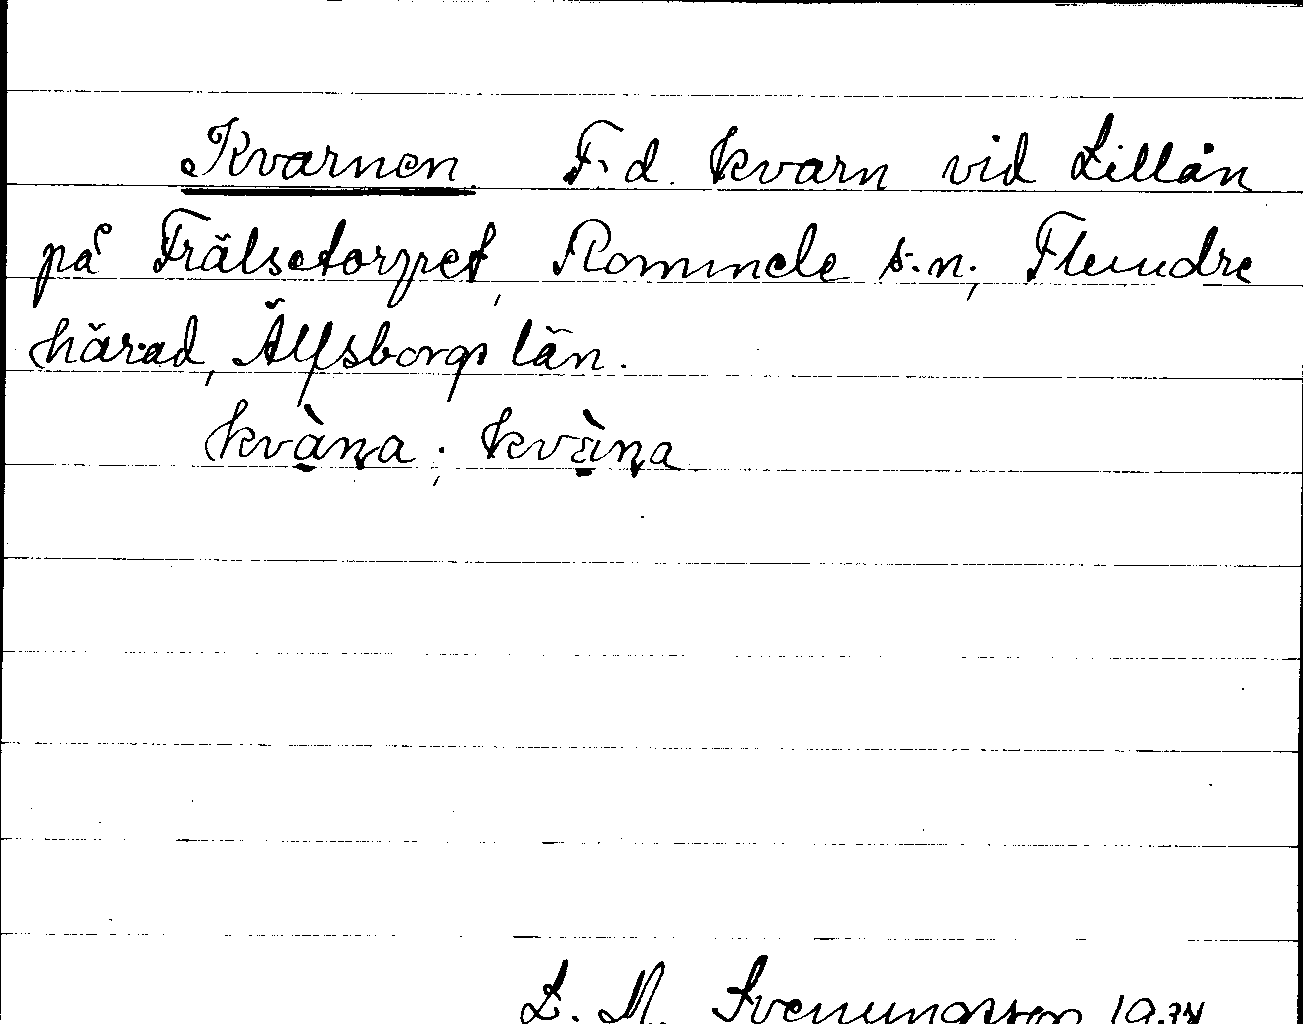 Kvarnen F.d. kvarn vid Lillån
på Frälsetorpet, Rommele s:n; Flundre
härad, Älfsborgs län.
kvàṇa; kvä̀ṇa
L. M. Svenungsson 1934